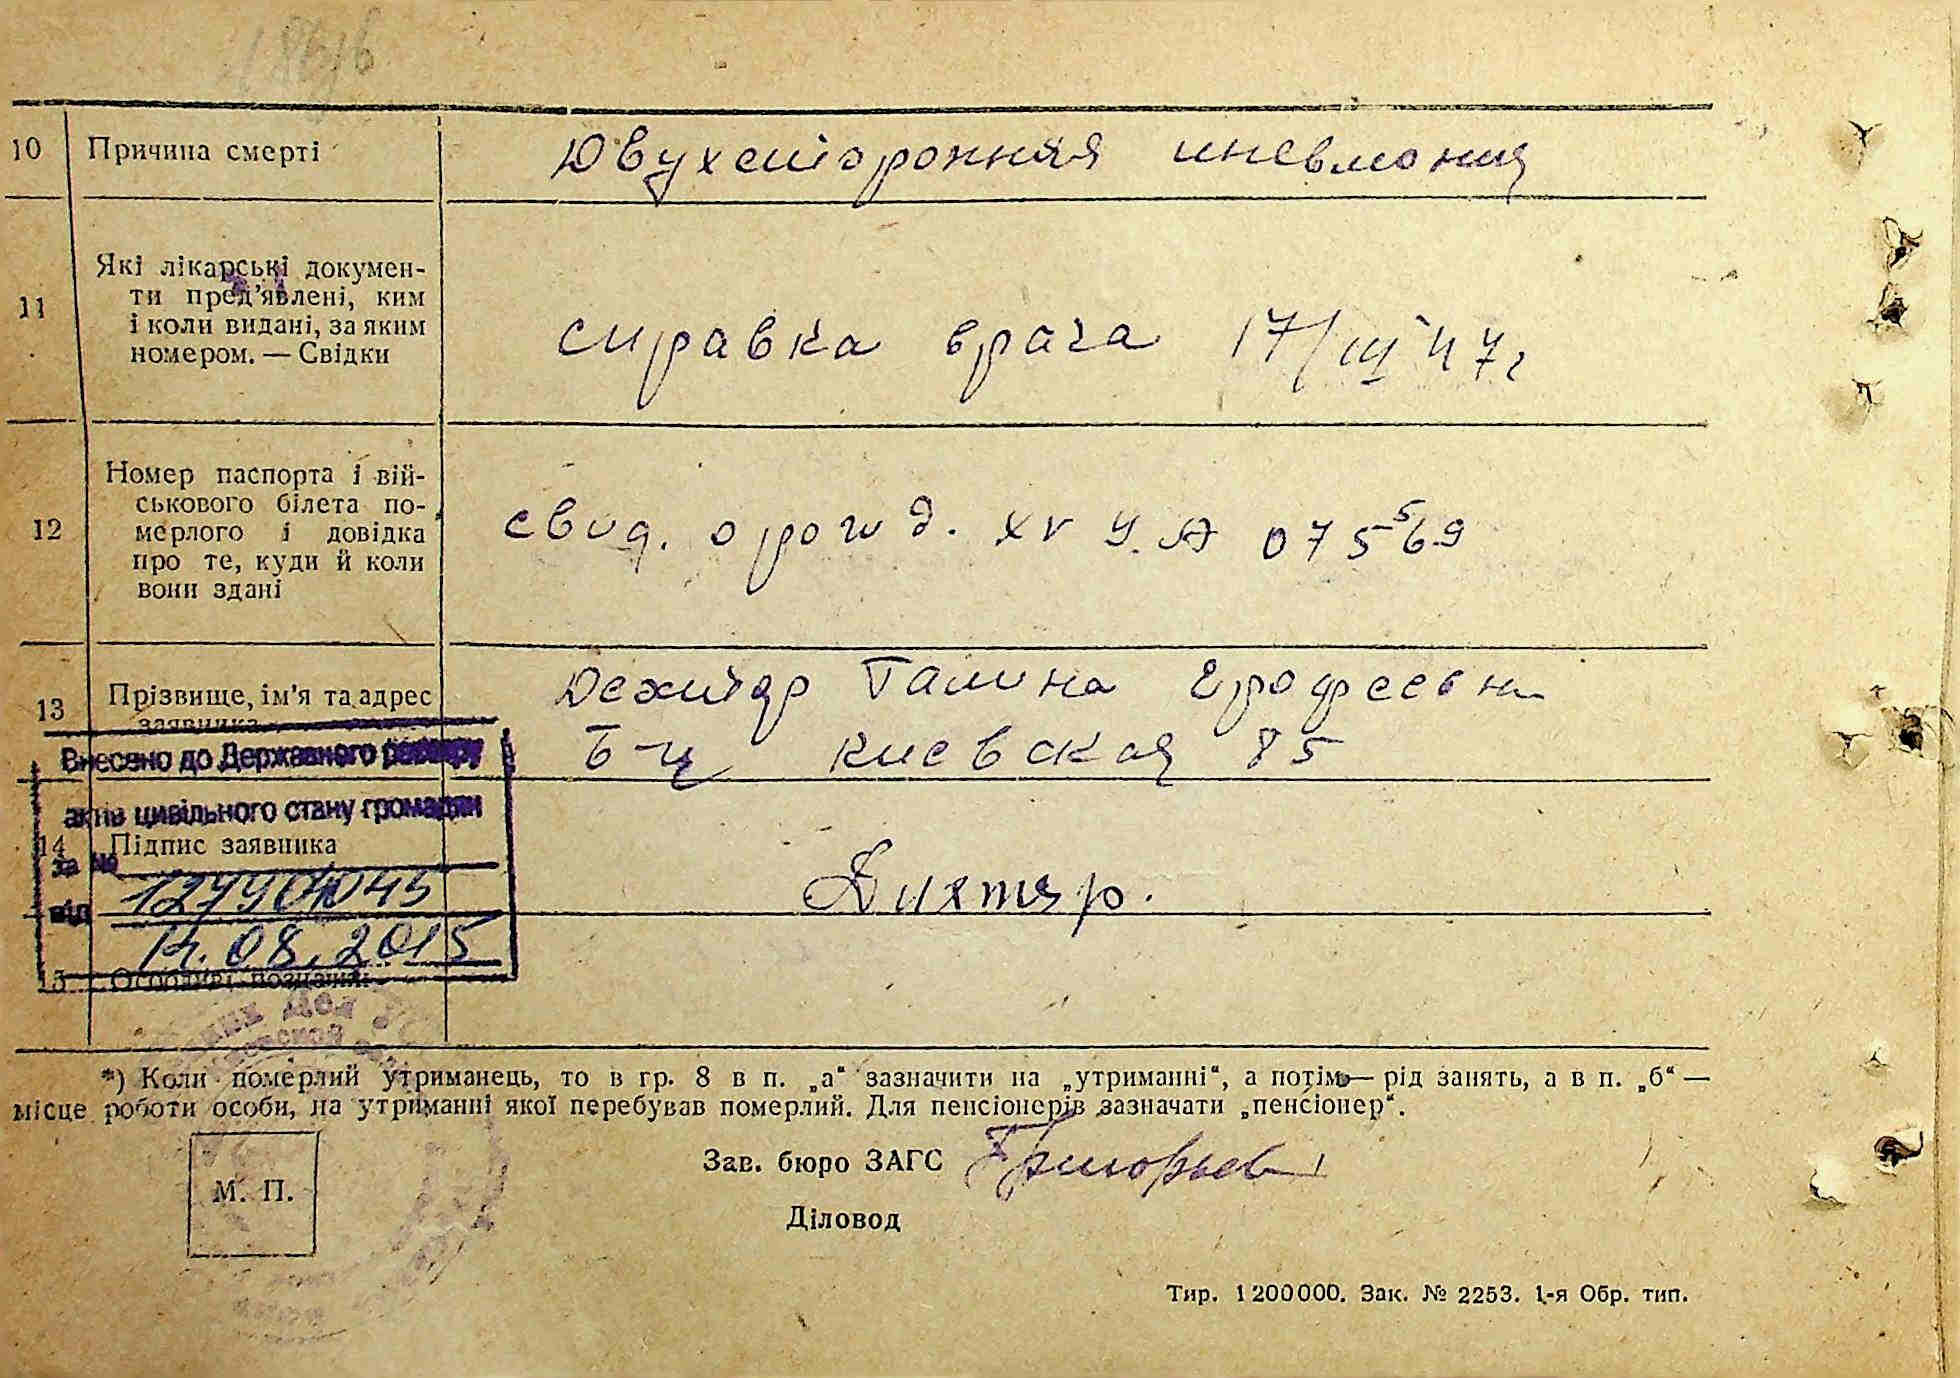 10 Причина смерті Двухсторонняя пневмония
11 Які лікарські докумен-
ти пред’явлені, ким
і коли видані, за яким
номером. — Свідки
справка врача 17/III 47г
12 Номер паспорта і вій-
ськового білета по-
мерлого і довідка
про те, куди й коли
вони здані
свид. о рожд. XV У.А 075569
13 Прізвище, ім’я та адрес
заявника
Галина Ерофеевн
Б-Ц Киевская 85
Внесено до Державного реєстру
актів цивільного стану громадян
14 Підпис заявника
Дихтяр.
за №
від
.08.2015
15 Особливі позначки
*) Коли померлий утриманець, то в гр. 8 в п. „а“ зазначити на „утриманні“, а потім — рід занять, а в п. „б“ —
місце роботи особи, на утриманні якої перебував померлий. Для пенсіонерів зазначати „пенсіонер“.
Зав. бюро ЗАГС
М. П.
Діловод
Тир. 1200000. Зак. № 2253. 1-я Обр. тип.